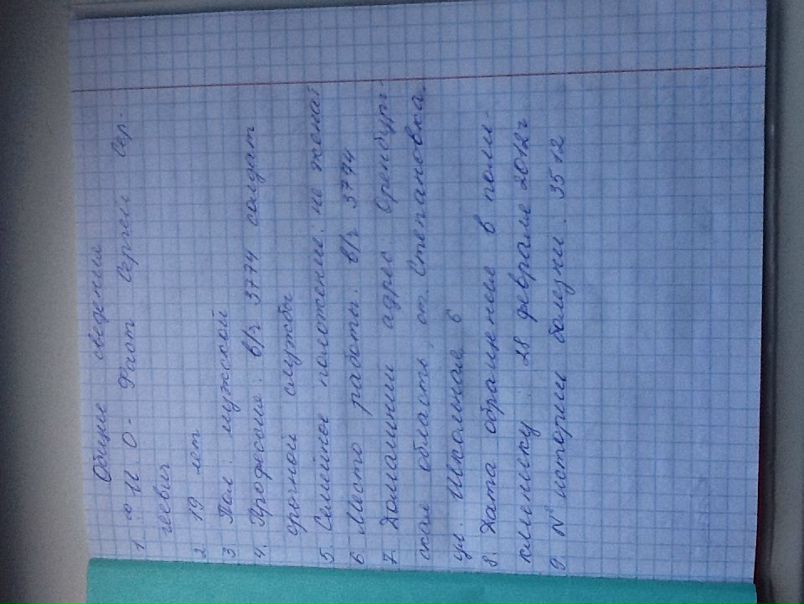 Общие сведения
1 Ф И О - Фаот Сергей Сер-
геевич
2 19 лет
3 Пол: мужской
4. Профессия: в/ч 3774 солдат
срочной службы
5 Семейное положение: не женат
6 Место работы: в/ч 3774
7. Домашний адрес Оренбург-
ская область, ст. Степановка
ул. Школьная 6
8. Дата обращения в поли-
клинику: 28 февраля 2012г
9. № истории болезни: 3512